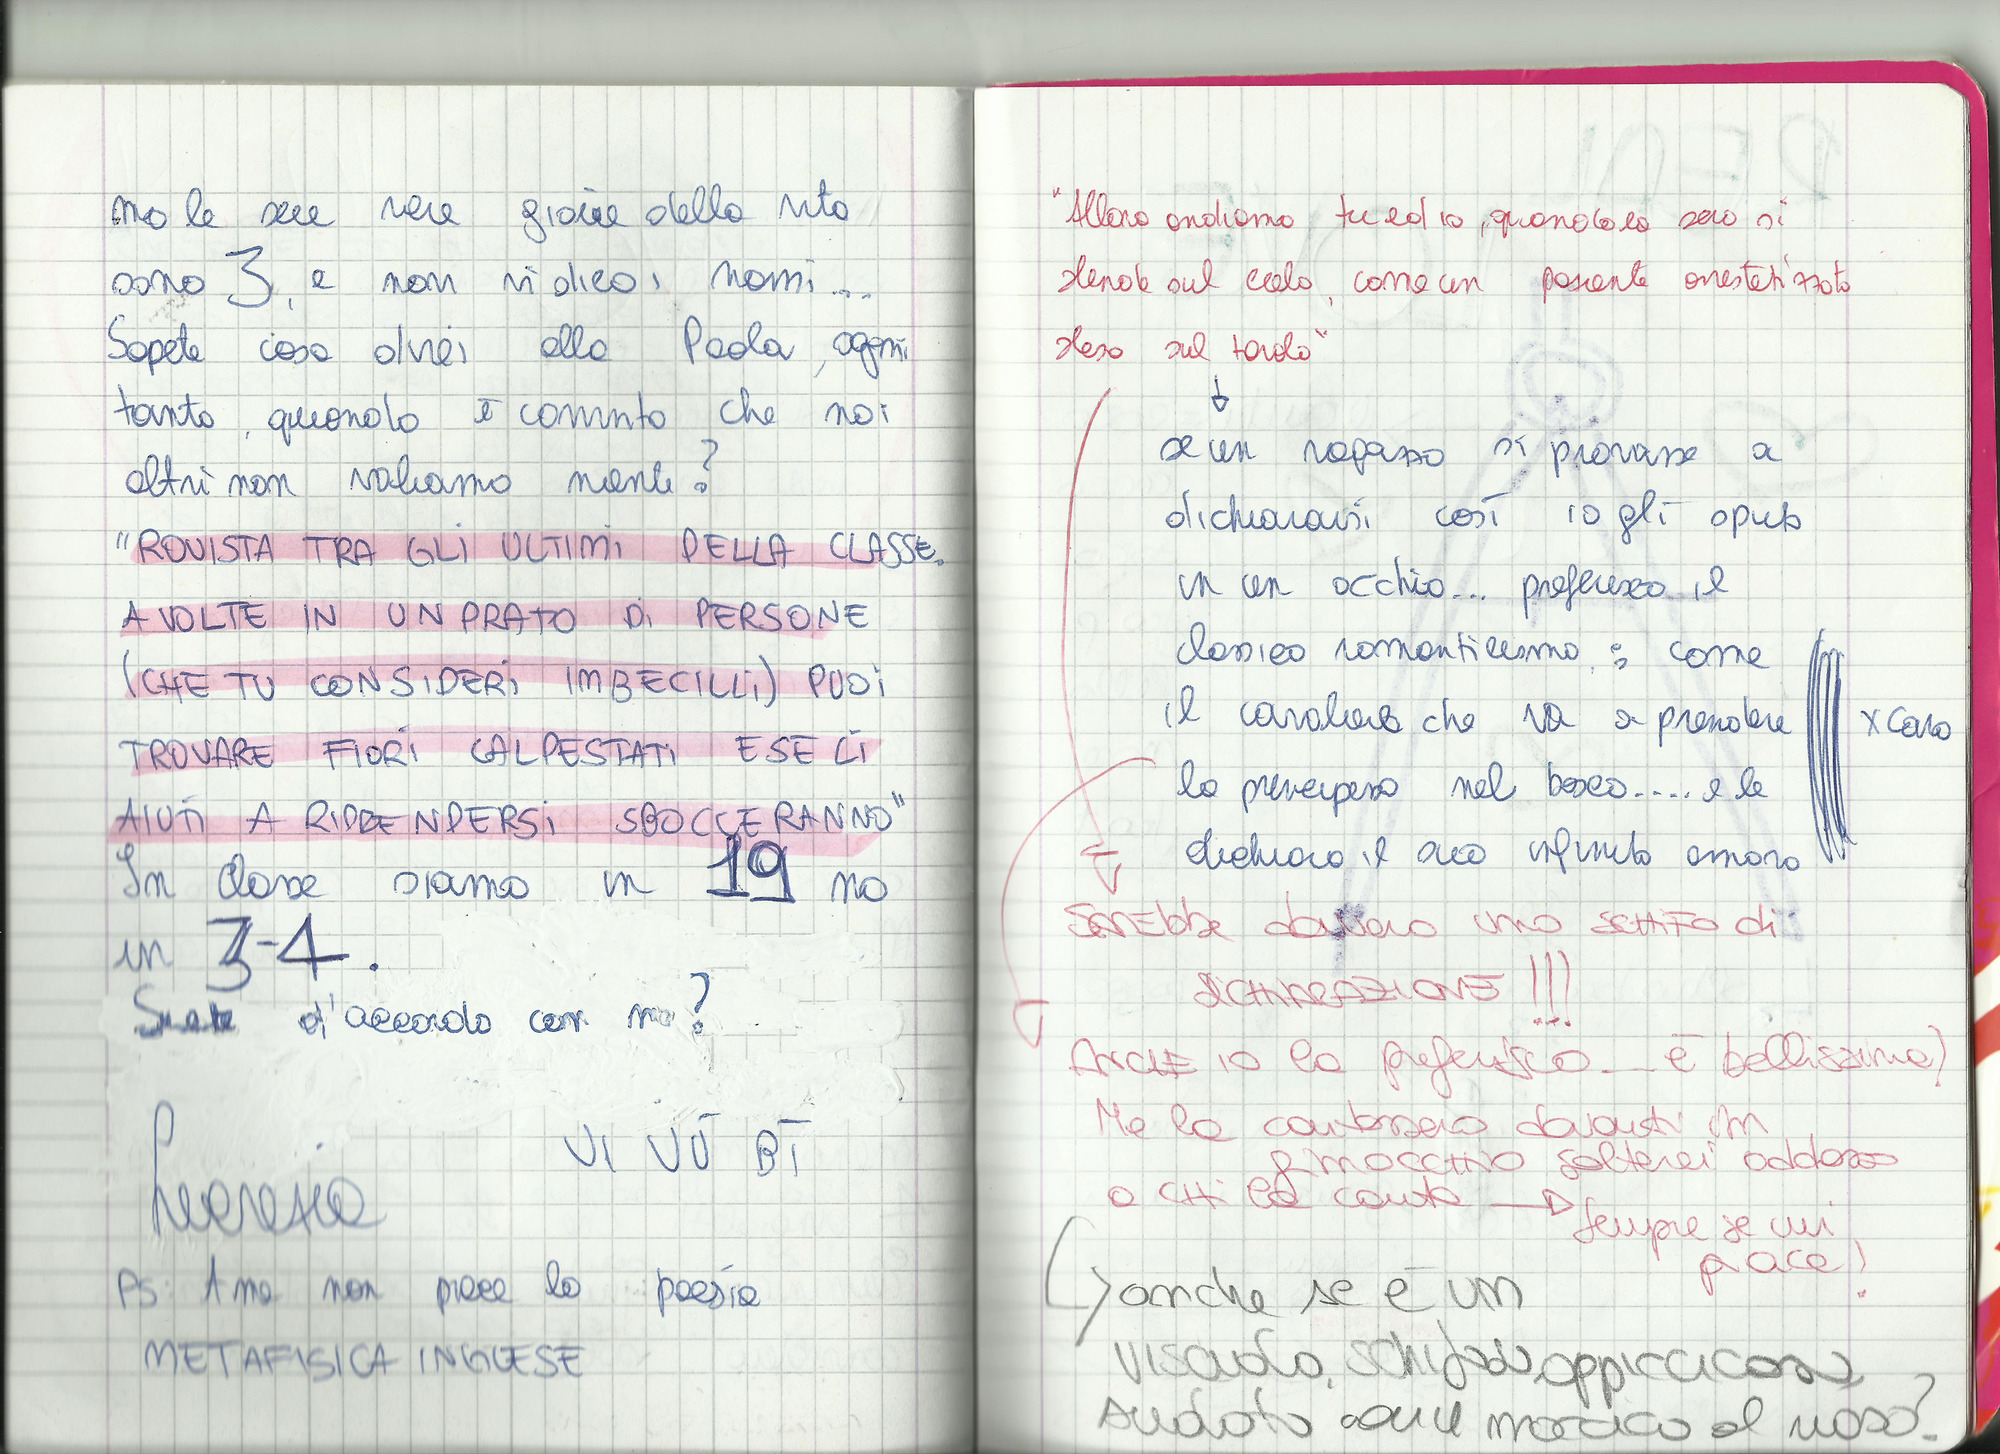 ma le sue vere gioie della vita
sono 3, e non vi dico i nomi...
Sapete cosa direi alla Paola, ogni
tanto, quando è convinto che noi
altri non valiamo niente?
"ROVISTA TRA GLI ULTIMI DELLA CLASSE.
A VOLTE IN UN PRATO DI PERSONE
(CHE TU CONSIDERI IMBECILLI) PUOI
TROVARE FIORI CALPESTATI E SE LI
AIUTI A RIPRENDERSI SBOCCERANNO"
In classe siamo in 19 no
in 3-4.
Siete d'accordo con me?
VI VU BI
Lucrezia
PS: A me non piace la poesia
METAFISICA INGLESE
"Allora andiamo tu ed io, quando la sera si
stende sul cielo, come un paziente anestetizzato
steso sul tavolo"
se un ragazzo si provasse a
dichiararsi così io gli sputo
in un occhio... preferisco il
classico romanticismo, : come
il cavaliere che va a prendere
la principessa nel bosco..... e le
dichiara il suo infinito amore
x caso
SAREbbe davvero uno SCHIFO di
DICHIARAZIONE!!!
ANCHE IO la preferisco... è bellissima!
Me la cantassero davanti in
ginocchio salterei addosso
a chi la canta → Sempre se mi
piace!
anche se è un
viscido, schifoso, appiccicoso,
sudato come moccico al naso?